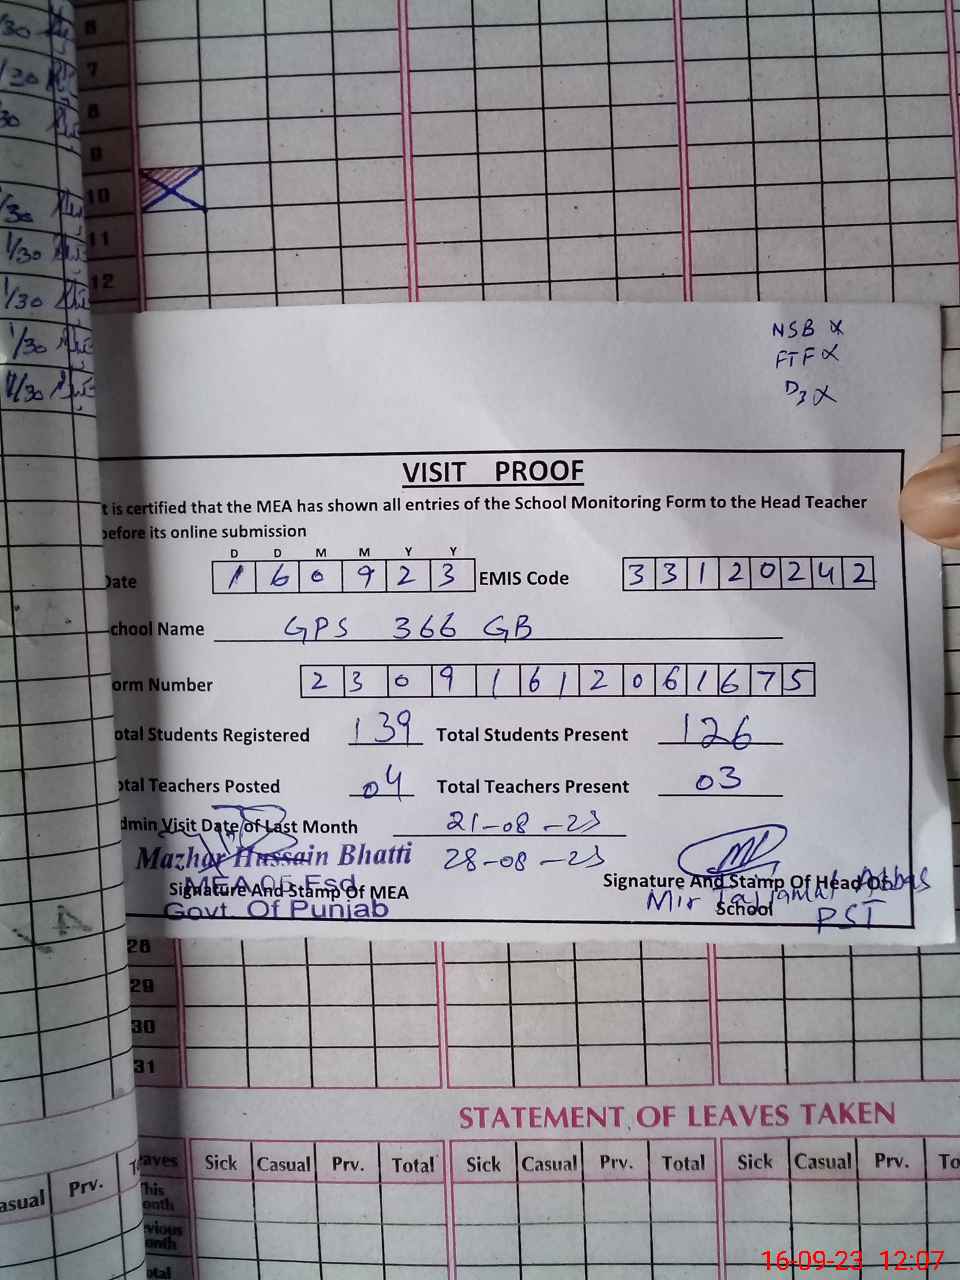 6
7
8
9
10
11
12
1/30
1/30
1/30
1/30
1/30
1/30
NSB
FTF
D3
VISIT PROOF
t is certified that the MEA has shown all entries of the School Monitoring Form to the Head Teacher
before its online submission
D D M M Y Y
Date 1 6 0 9 2 3 EMIS Code 3 3 1 2 0 2 4 2
chool Name GPS 366 GB
orm Number 2 3 0 9 1 6 1 2 0 6 1 6 7 5
otal Students Registered 139 Total Students Present 126
otal Teachers Posted 04 Total Teachers Present 03
dmin Visit Date of Last Month 21-08-23
28-08-23
Mazhar Hussain Bhatti
MEA OF Fsd
Govt. Of Punjab
Signature And Stamp Of MEA
Signature And Stamp Of Head Of
School
Mir Tajjamal Abbas
PST
28
29
30
31
STATEMENT OF LEAVES TAKEN
eaves Sick Casual Prv. Total Sick Casual Prv. Total Sick Casual Prv. To
asual Prv.
This
onth
vious
onth
otal
16-09-23 12:07